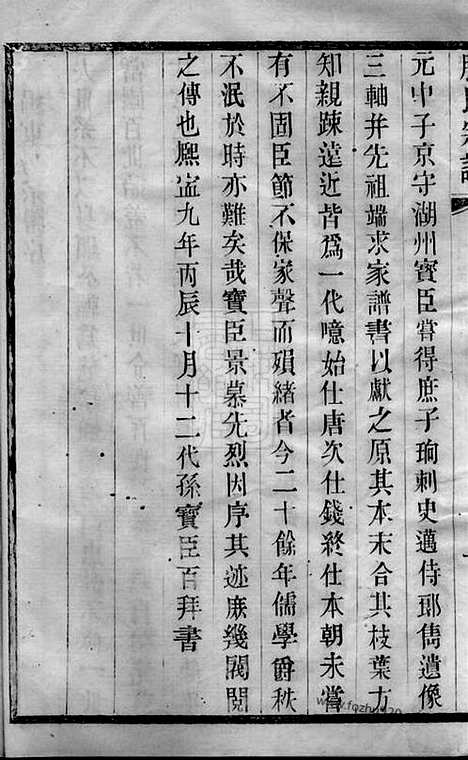 元中子京守湖州寳臣嘗得庶子珦刺史邁侍郎儁遺像
三軸并先祖端求家譜書以獻之原其本末合其枝葉方
知親疎遠近皆爲一代噫始仕唐次仕錢終仕本朝未嘗
有不固臣節不保家聲而殞緒者今二十餘年儒學爵秩
不泯於時亦難矣哉寶臣景慕先烈因序其迹庶幾閥閱
之傳也熈寧九年丙辰十月十二代孫寶臣百拜書